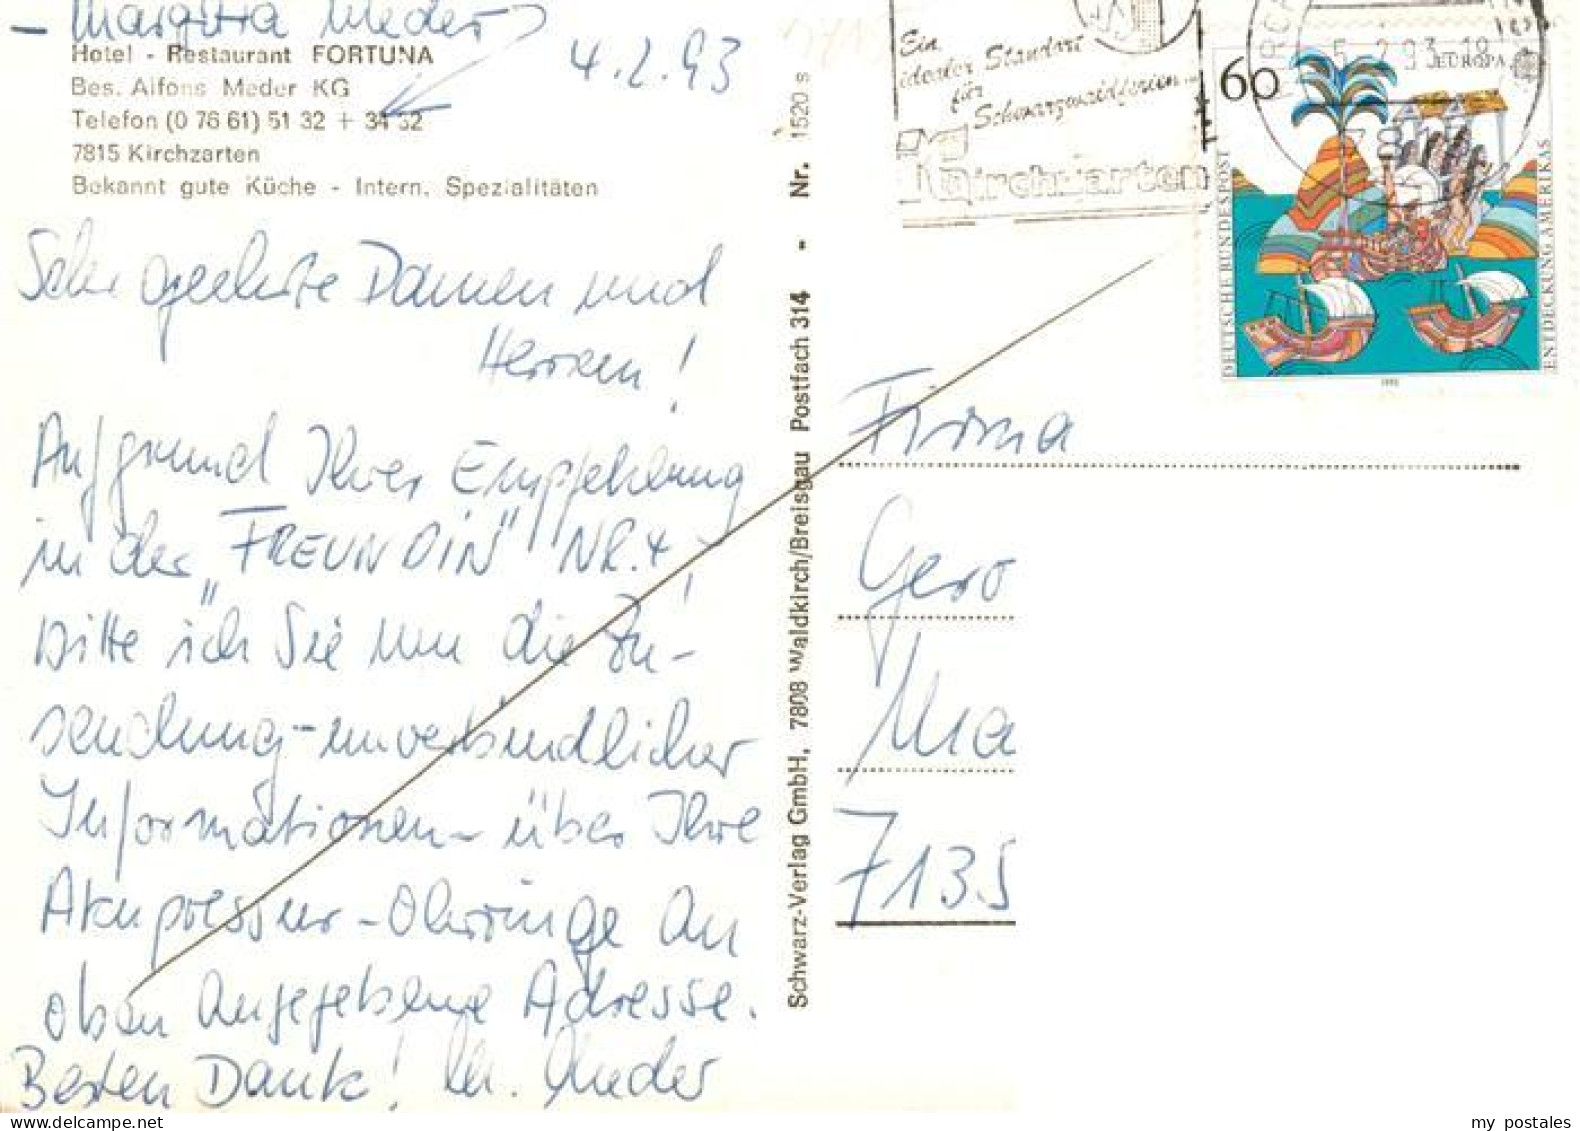 - Margitta Meder
4.2.93
Hotel - Restaurant FORTUNA
Bes. Alfons Meder KG
Telefon (0 76 61) 51 32 + 34 32
7815 Kirchzarten
Bekannt gute Küche - Intern. Spezialitäten
Sehr geehrte Damen und
Herren!
Aufgrund Ihrer Empfehlung
in der „FREUNDIN" NR. 4,
bitte ich Sie um die Zu-
sendung - unverbindlicher
Informationen - über Ihre
Akupressur-Ohrringe an
oben angegebene Adresse.
Besten Dank! M. Meder
Schwarz-Verlag GmbH, 7808 Waldkirch/Breisgau Postfach 314 - Nr. 1520 s
Ein
idealer Standort
für
Schwarzwaldferien...
Kirchzarten
5.-2.93-18
7815
60
EUROPA
DEUTSCHE BUNDESPOST
ENTDECKUNG AMERIKAS
1992
Firma
Gero
Ma
7135
my postales